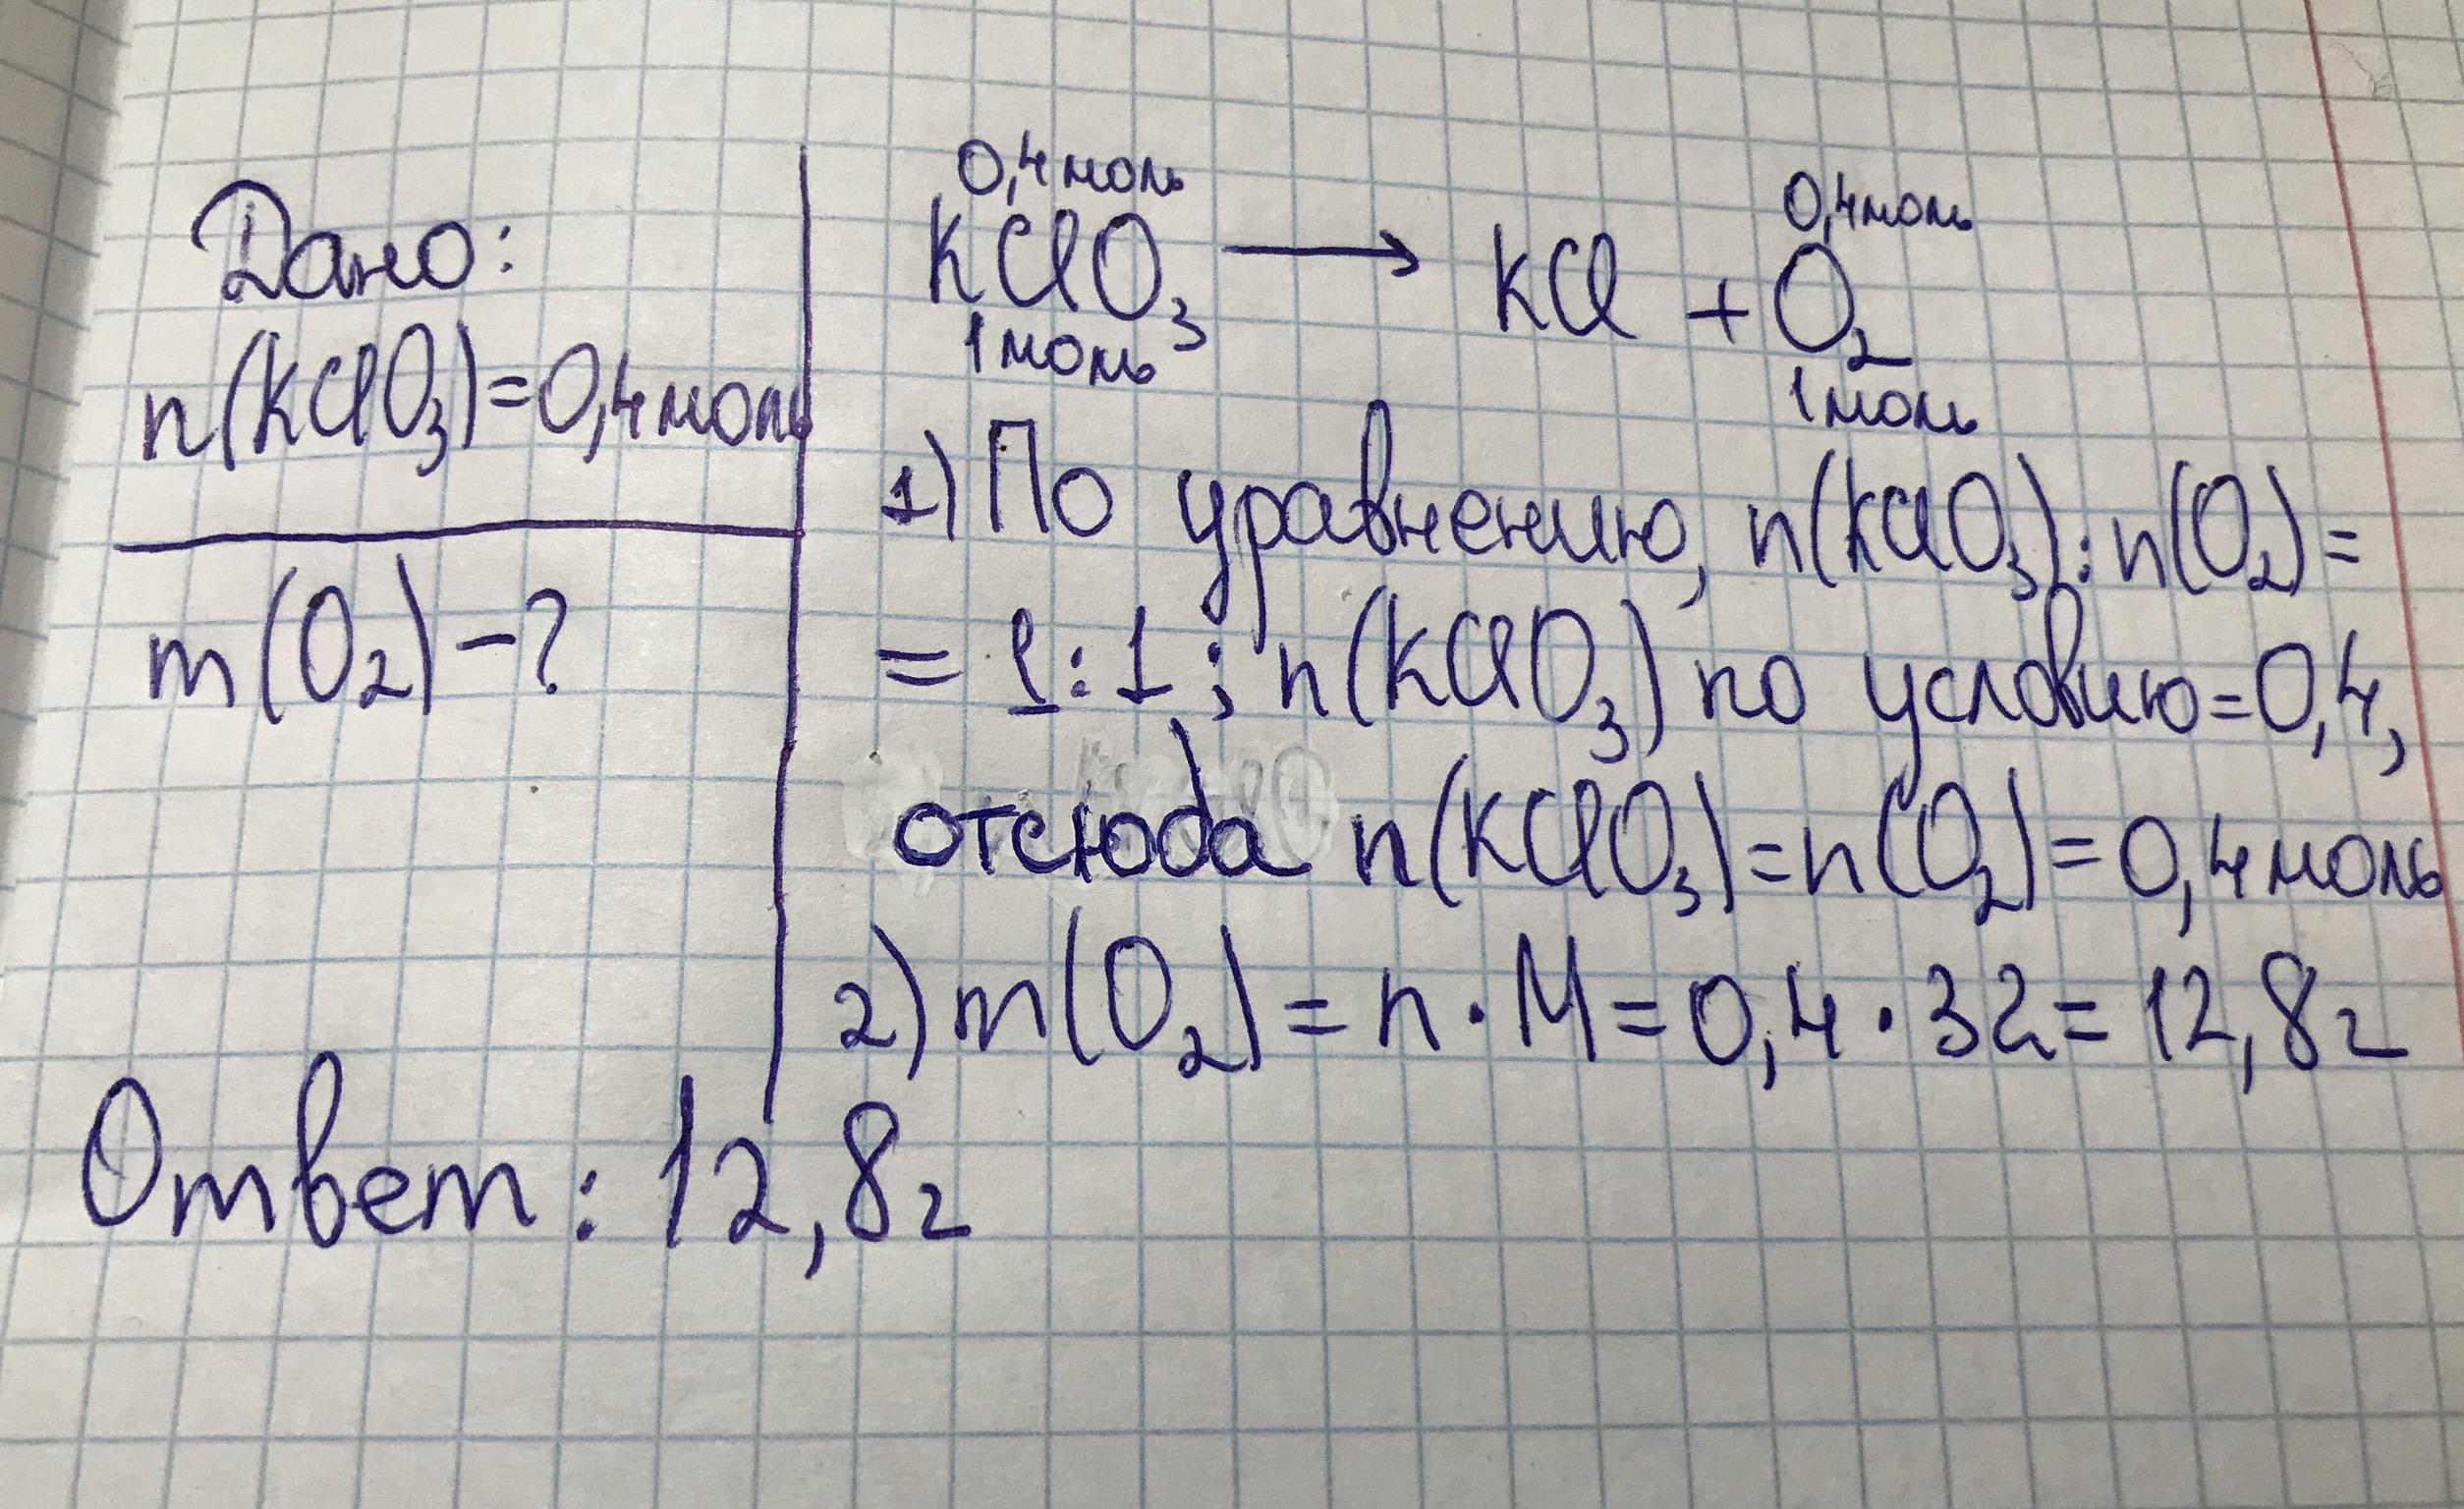 Дано:
n(KClO₃)=0,4моль
m(O₂)-?
0,4моль 0,4моль
KClO₃ → KCl + O₂
1моль 1моль
1) По уравнению, n(KClO₃):n(O₂)=
= 1:1; n(KClO₃) по условию=0,4,
отсюда n(KClO₃)=n(O₂)=0,4моль
2) m(O₂)=n·M=0,4·32=12,8г
Ответ: 12,8г